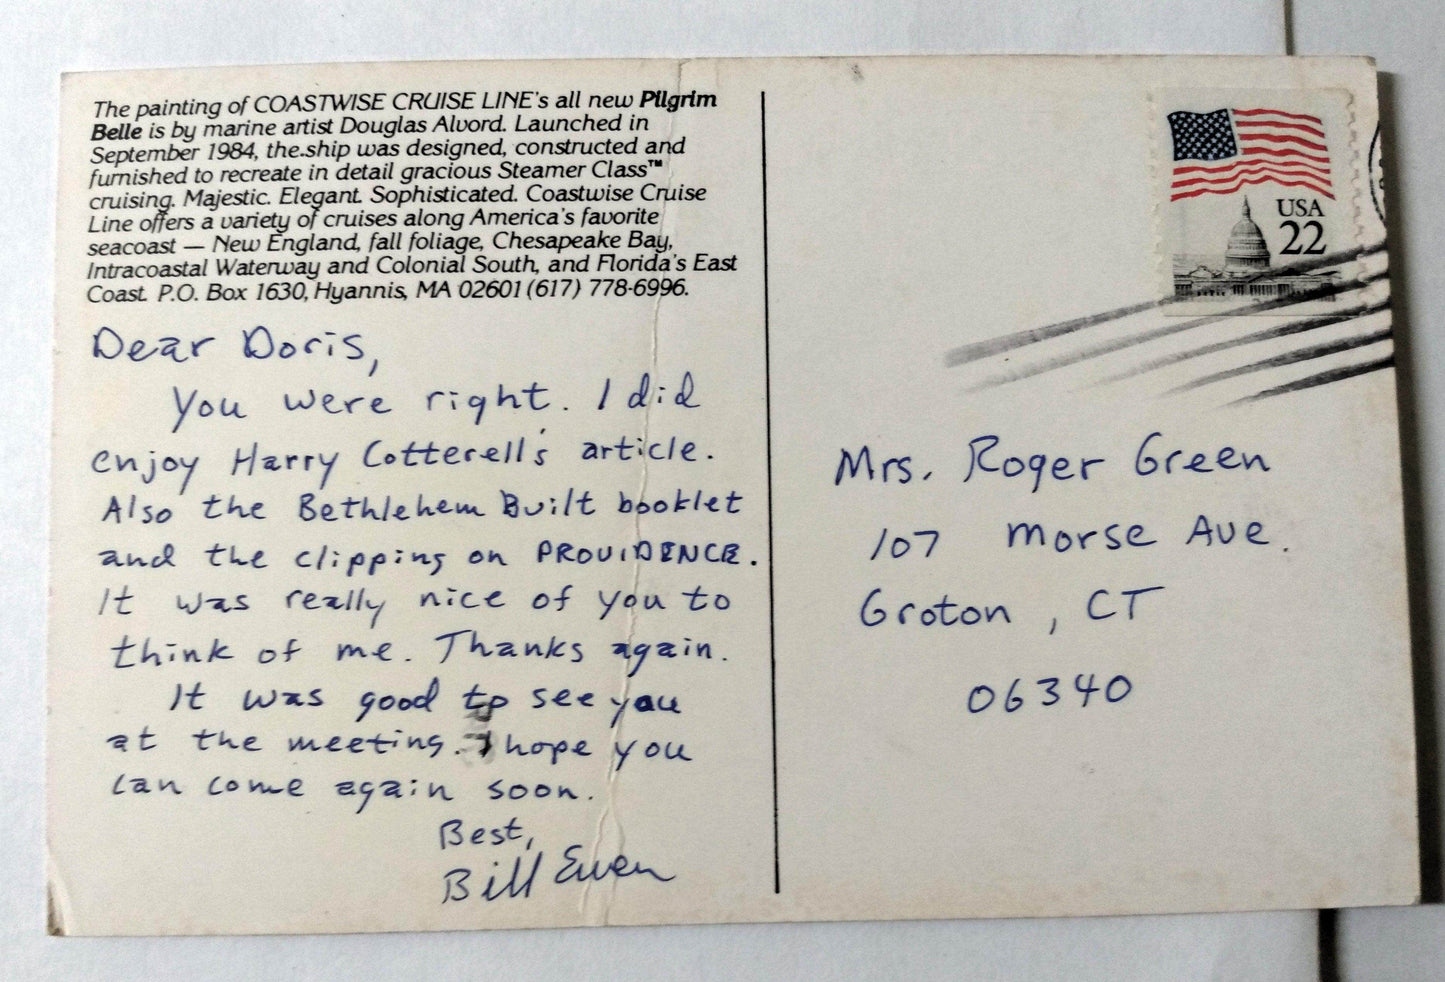 The painting of COASTWISE CRUISE LINE's all new Pilgrim
Belle is by marine artist Douglas Alvord. Launched in
September 1984, the ship was designed, constructed and
furnished to recreate in detail gracious Steamer Class™
cruising. Majestic. Elegant. Sophisticated. Coastwise Cruise
Line offers a variety of cruises along America's favorite
seacoast — New England, fall foliage, Chesapeake Bay,
Intracoastal Waterway and Colonial South, and Florida's East
Coast. P.O. Box 1630, Hyannis, MA 02601 (617) 778-6996.
Dear Doris,
You were right. I did
enjoy Harry Cotterell's article.
Also the Bethlehem Built booklet
and the clipping on PROVIDENCE.
It was really nice of you to
think of me. Thanks again.
It was good to see you
at the meeting. I hope you
can come again soon.
Best,
Bill Ewen
USA
22
Mrs. Roger Green
107 Morse Ave.
Groton, CT
06340